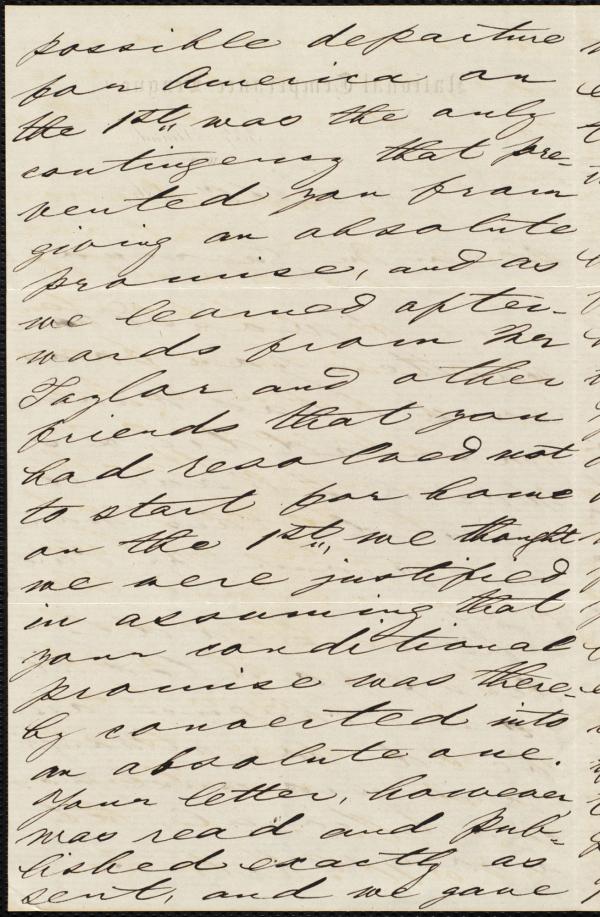 possible departure
for America on
the 1st, was the only
contingency that pre-
vented you from
giving an absolute
promise, and as
we learned after-
wards from Mr
Taylor and other
friends that you
had resolved not
to start for home
on the 1st, we thought
we were justified
in assuming that
your conditional
promise was there-
by converted into
an absolute one.
Your letter, however,
was read and pub-
lished exactly as
sent, and we gave